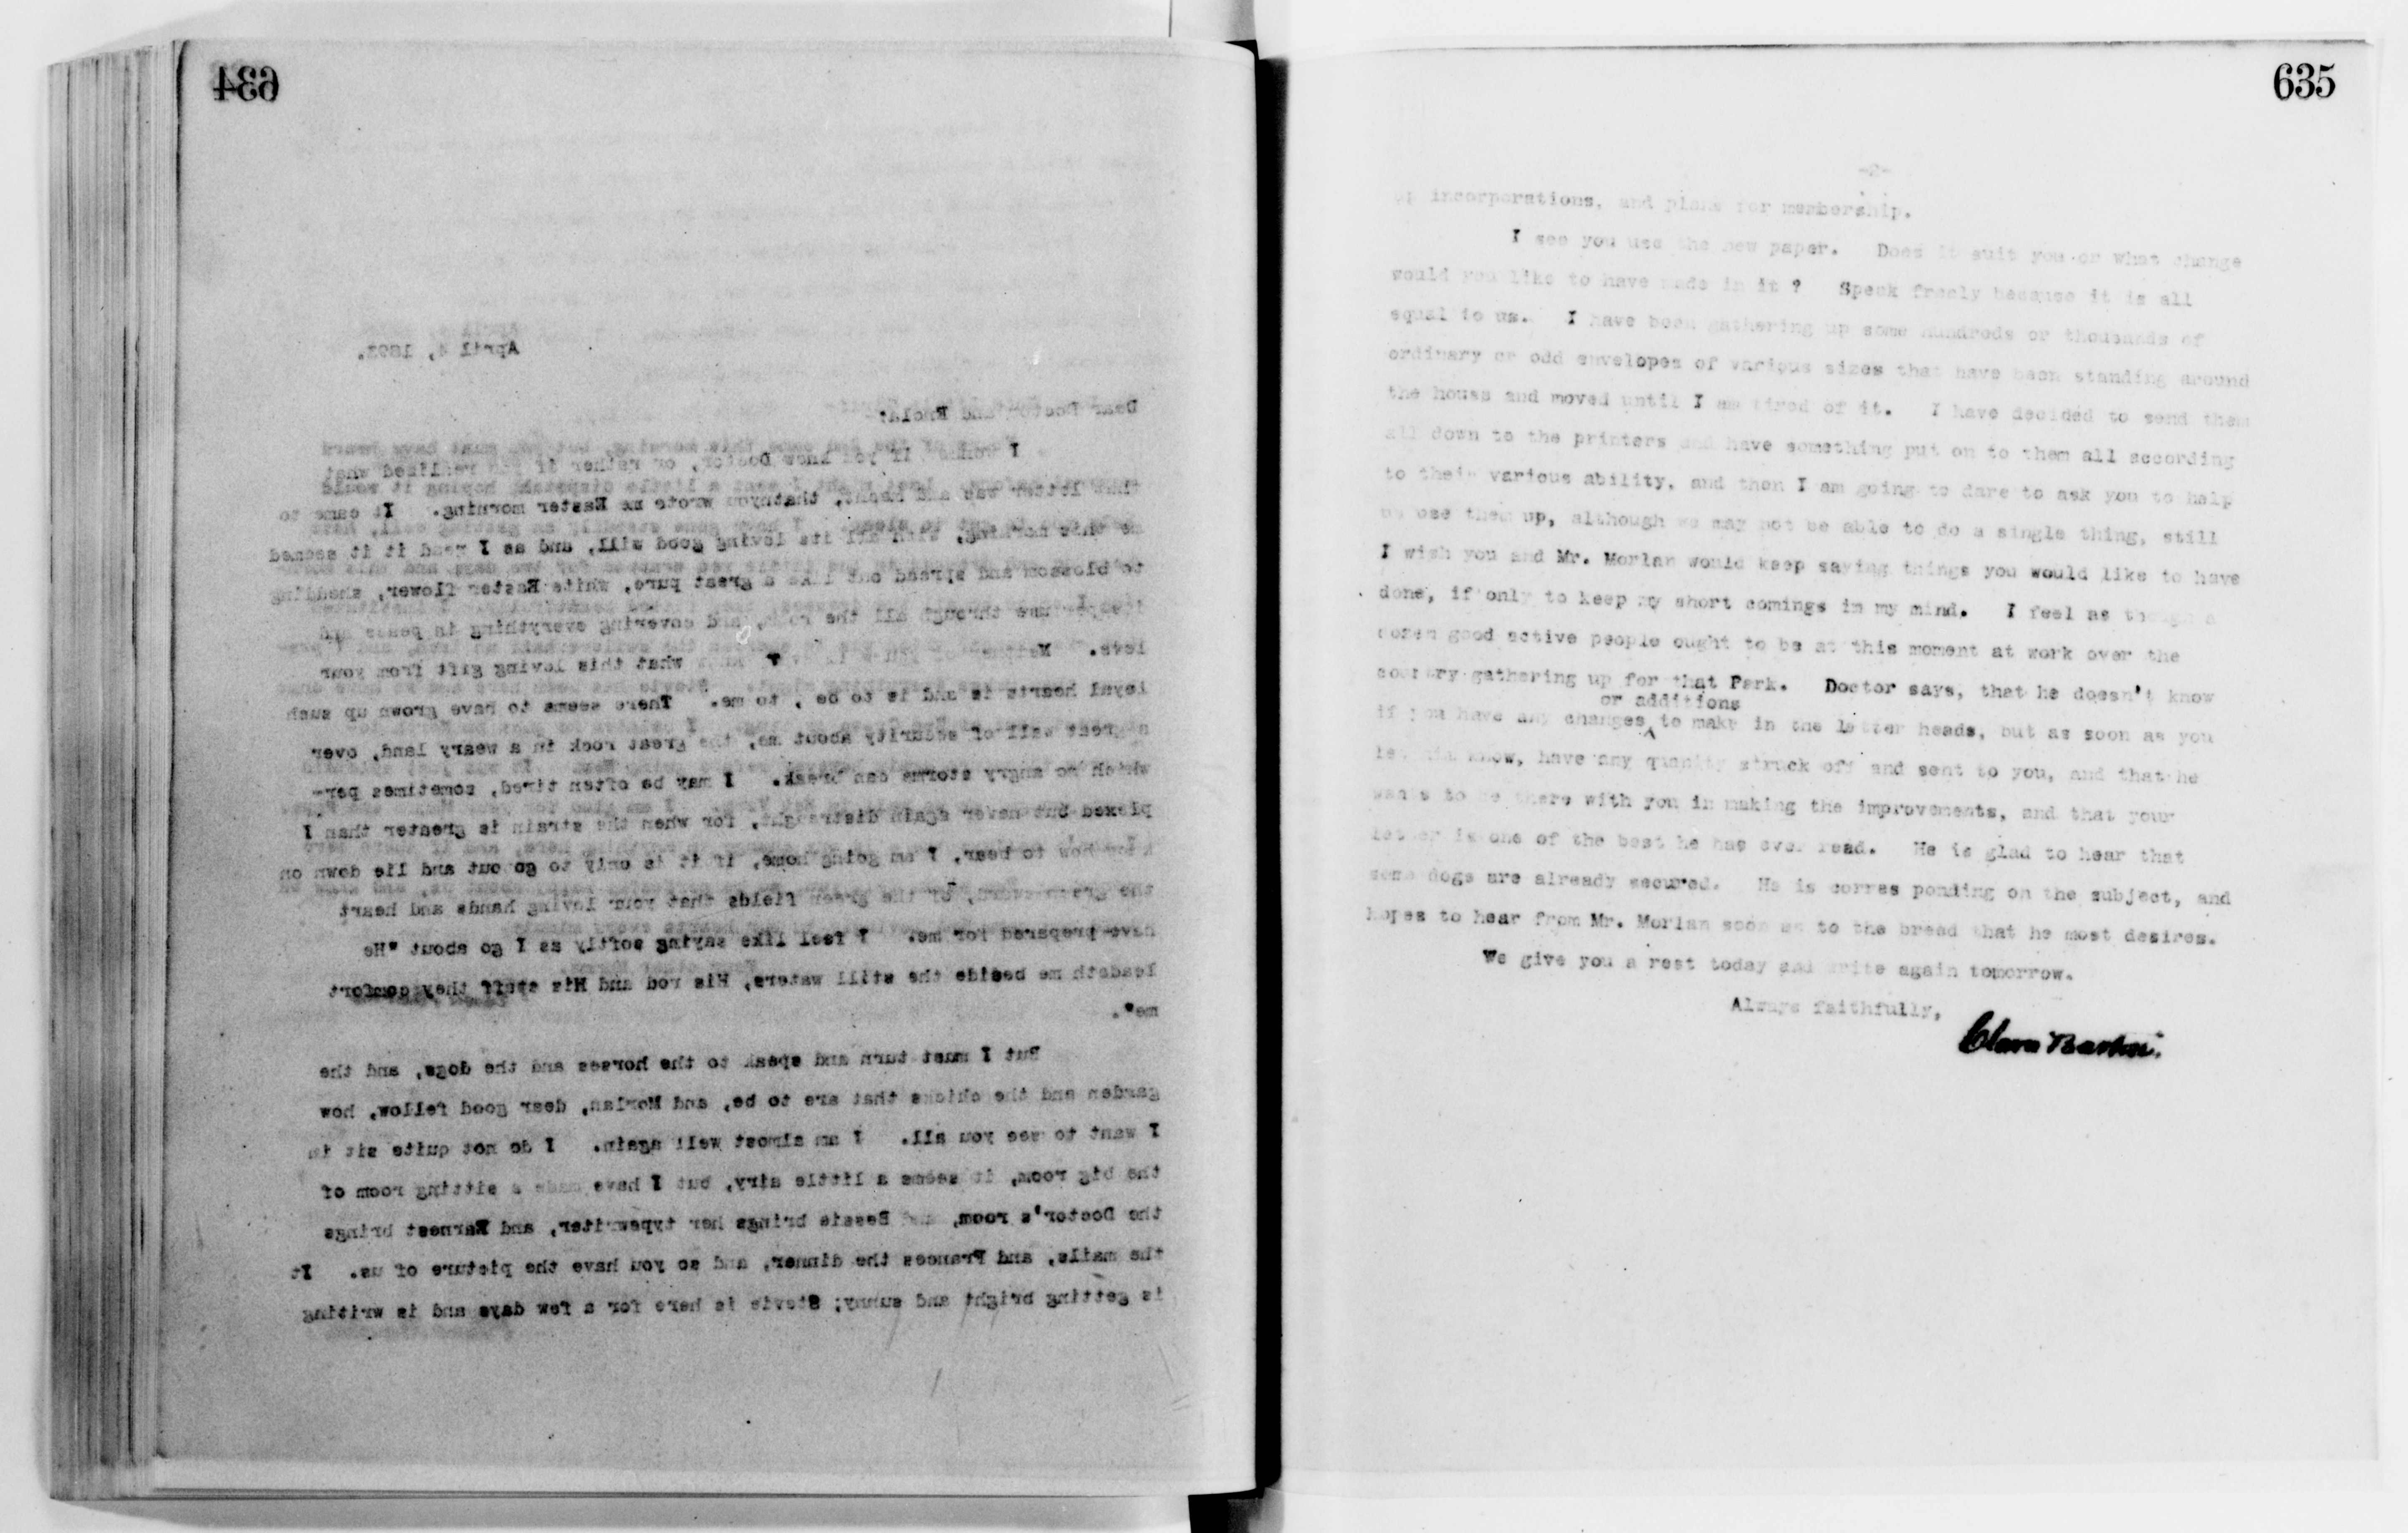 634
April 4, 1893.
Dear Doctor and Enola:
I wonder if you knew Doctor, or rather if you realized what
that letter was and meant, thatnyou wrote me Easter morning. It came to
me this morning, with all its loving good will, and as I read it it seemed
to blossom and spread out like a great pure, white Easter flower, shedding
its perfume through all the room, and covering everything in peace and
love. what this loving gift from your
loyal hearts is and is to be, to me. There seems to have grown up such
a great wall of security about me, the great rock in a weary land, over
which no angry storms can break. I may be often tired, sometimes per-
plexed but never again distraught, for when the strain is greater than I
know how to bear, I am going home, if it is only to go out and lie down on
the green sward, of the green fields that your loving hands and heart
have prepared for me. I feel like saying softly as I go about "He
leadeth me beside the still waters, His rod and His staff they comfort
me".
But I must turn and speak to the horses and the dogs, and the
garden and the chicks that are to be, and Morlan, dear good fellow, how
I want to see you all. I am almost well again. I do not quite sit in
the big room, it seems a little airy, but I have made a sitting room of
the Doctor's room, and Bessie brings her typewriter, and Earnest brings
the mails, and Frances the dinner, and so you have the picture of us. It
is getting bright and sunny; Stevie is here for a few days and is writing
635
-2-
up incorporations, and plans for membership.
I see you use the new paper. Does it suit you or what change
would you like to have made in it ? Speak freely because it is all
equal to us. I have been gathering up some hundreds or thousands of
ordinary or odd envelopes of various sizes that have been standing around
the house and moved until I am tired of it. I have decided to send them
all down to the printers and have something put on to them all according
to their various ability, and then I am going to dare to ask you to help
us use them up, although we may not be able to do a single thing, still
I wish you and Mr. Morlan would keep saying things you would like to have
done, if only to keep my short comings in my mind. I feel as though a
dozen good active people ought to be at this moment at work over the
country gathering up for that Park. Doctor says, that he doesn't know
or additions
if you have any changes ^ to make in the letter heads, but as soon as you
let him know, have any quanity struck off and sent to you, and that he
wants to be there with you in making the improvements, and that your
letter is one of the best he has ever read. He is glad to hear that
some dogs are already secured. He is corres ponding on the subject, and
hopes to hear from Mr. Morlan soon as to the bread that he most desires.
We give you a rest today and write again tomorrow.
Always faithfully,
Clara Barton.